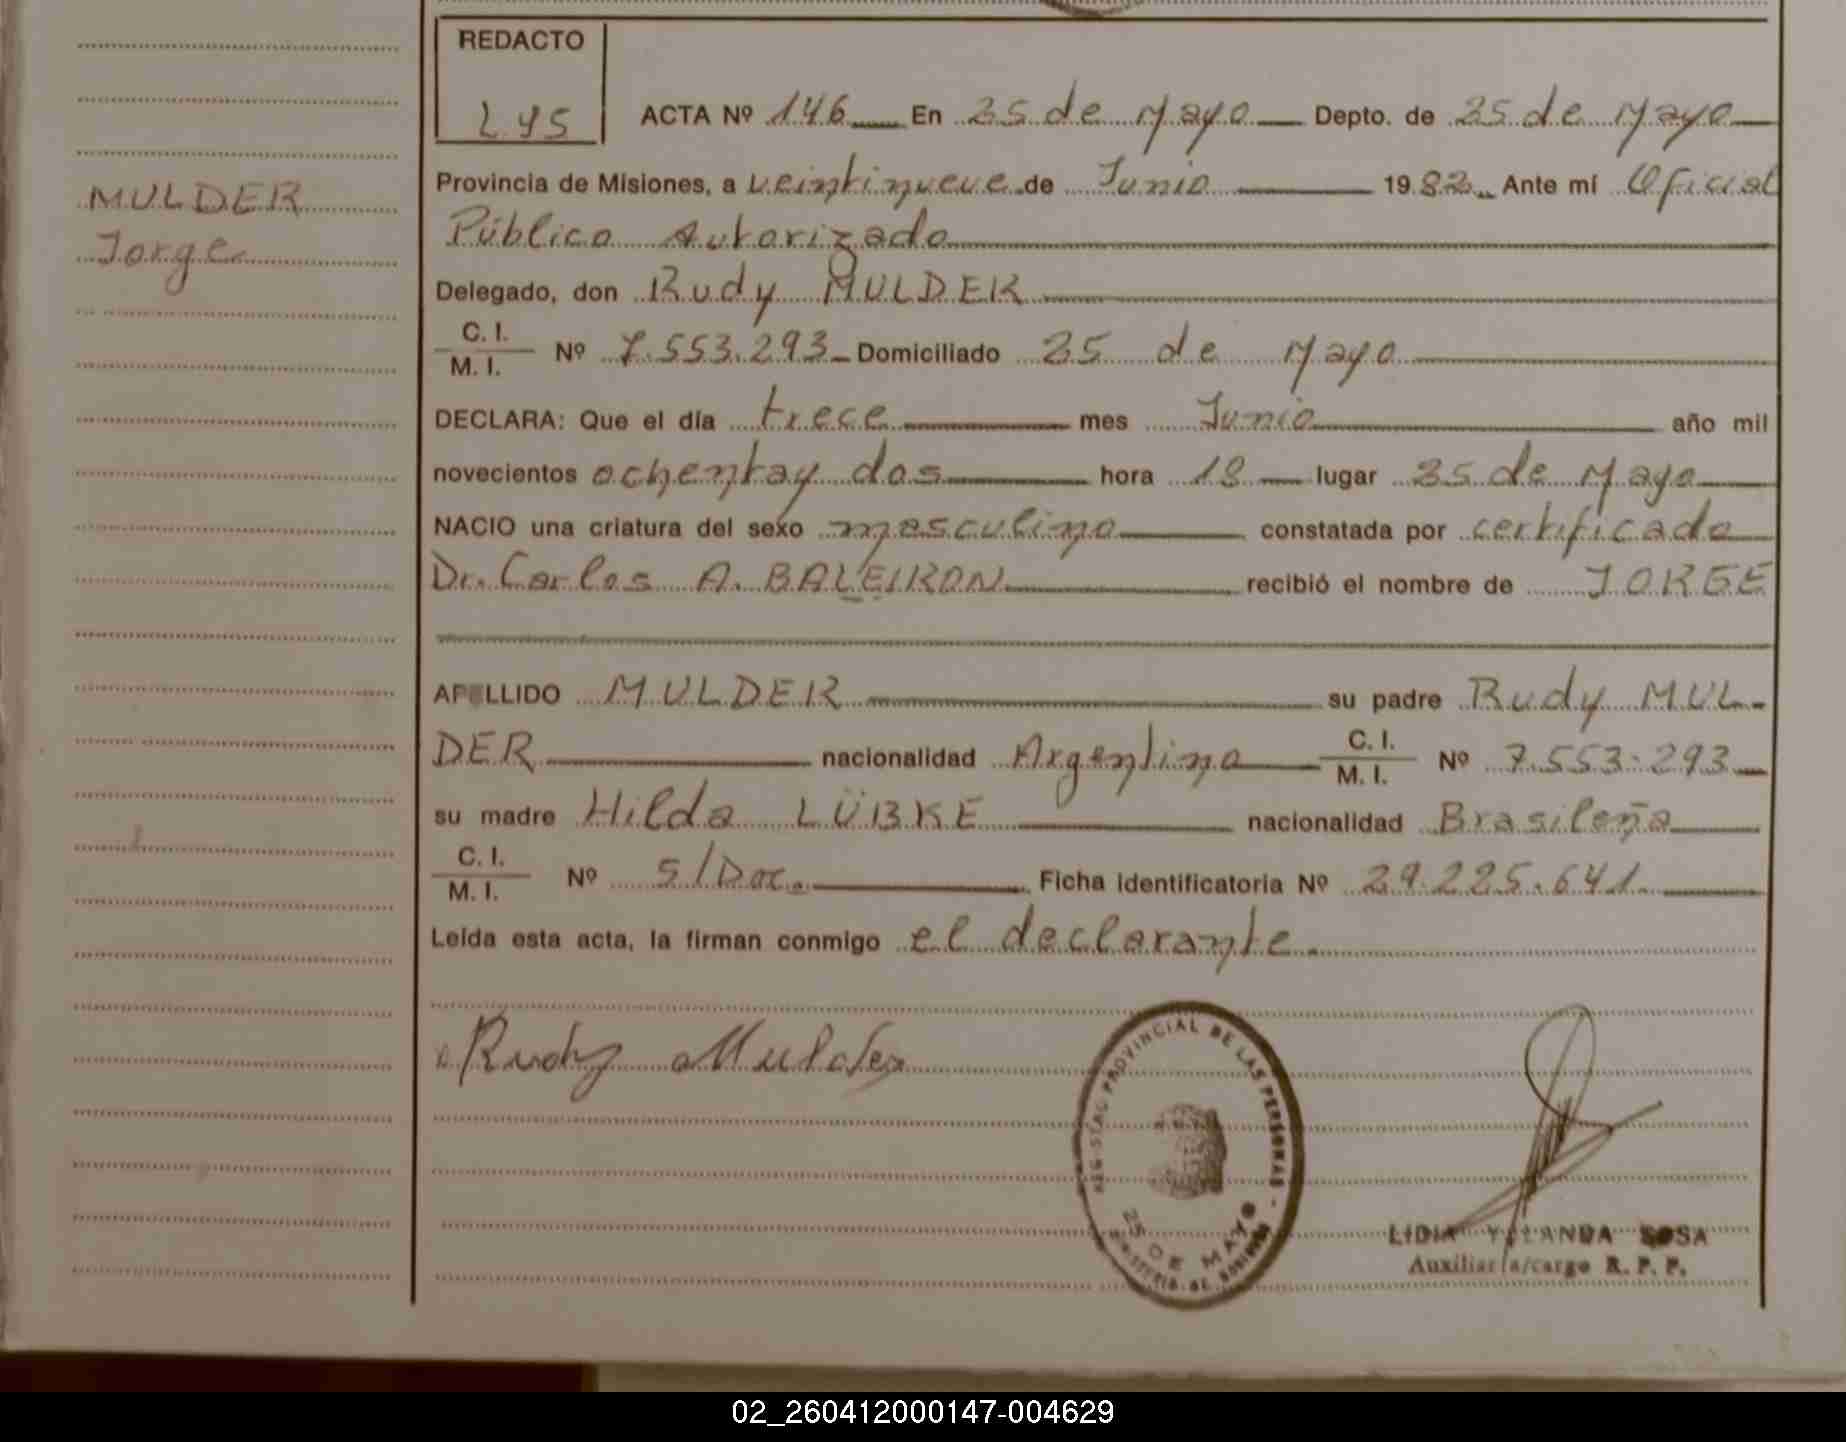 REDACTO
LYS
ACTA Nº 146 En 25 de Mayo Depto. de 25 de Mayo
Provincia de Misiones, a veintinueve de Junio 1982 Ante mí Oficial
Público Autorizado
MULDER
Jorge
Delegado, don Rudy MULDER
C. I.
M. I. Nº 7.553.293 Domiciliado 25 de Mayo
DECLARA: Que el día trece mes Junio año mil
novecientos ochenta y dos hora 18 lugar 25 de Mayo
NACIO una criatura del sexo masculino constatada por certificado
Dr. Carlos A. BALEIRON recibió el nombre de JORGE
APELLIDO MULDER su padre Rudy MUL-
DER nacionalidad Argentina C. I. M. I. Nº 7.553.293
su madre Hilda LÜBKE nacionalidad Brasileña
C. I.
M. I. Nº S/Doc. Ficha identificatoria Nº 29.225.641.
Leída esta acta, la firman conmigo el declarante.
Rudy Mulder
REGISTRO PROVINCIAL DE LAS PERSONAS
25 DE MAYO
LIDIA YOLANDA SOSA
Auxiliar a/cargo R. P. P.
02_260412000147-004629